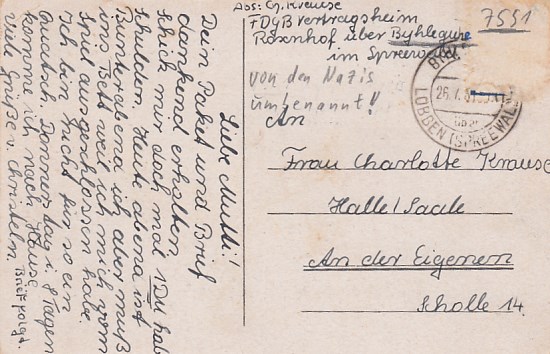 Liebe Mutti!
Dein Paket und Brief
dankend erhalten
schick mir doch mal 1 Du hab
schulden. Heute abend ist
Bunterabend ich aber muß
ins Bett weil ich mich vom
Spiel ausgeschlossen habe.
Ich bin nicht für so ein
Quatsch. Donnerstag i. 8 Tagen
komme ich nach Hause
viele Grüße v. Christelm. Brief folgt.
Abs: Ch. Krause
FDGB Vertragsheim
Rosenhof über Byhleguhre
im Spreewald
7551
von den Nazis
umbenannt!
LÜBBEN (SPREEWALD)
An
Frau Charlotte Krause
Halle/Saale
An der Eigenen
Scholle 14.